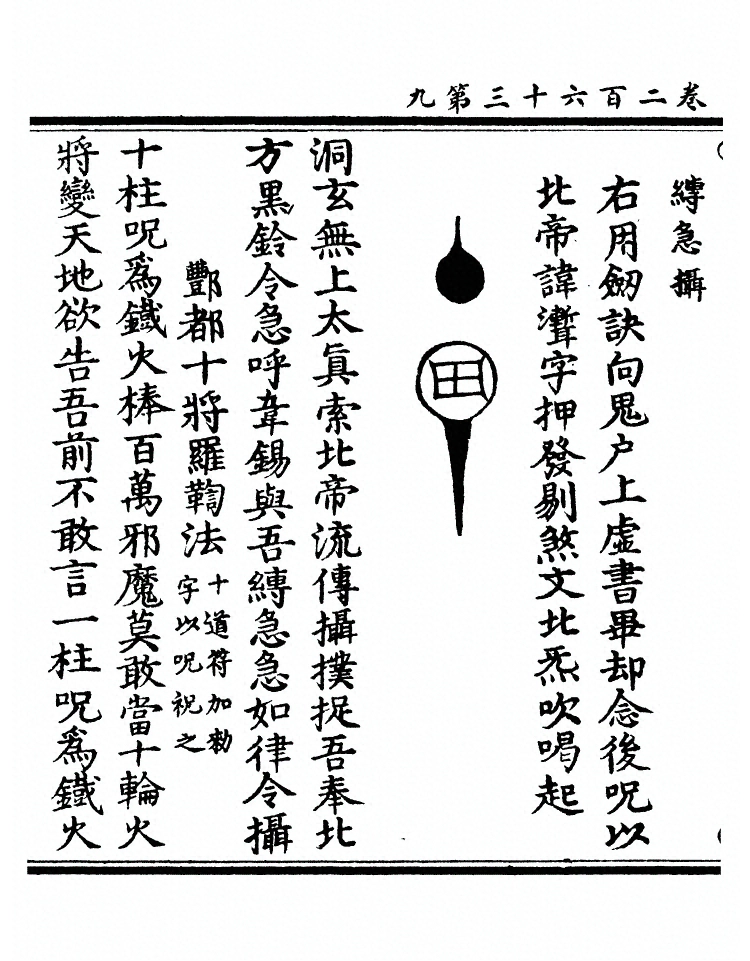 卷二百六十三第九
縛急攝
右用劒訣向鬼户上虛書畢却念後呪以
北帝諱灊字押發剔煞文北炁吹喝起
田
洞玄無上太眞索北帝流傳攝撲捉吾奉北
方黑鈴令急呼韋錫與吾縛急急如律令攝
酆都十將羅鞫法十道符加勑字以呪祝之
十柱呪爲鐵火棒百萬邪魔莫敢當十輪火
將變天地欲告吾前不敢言一柱呪爲鐵火